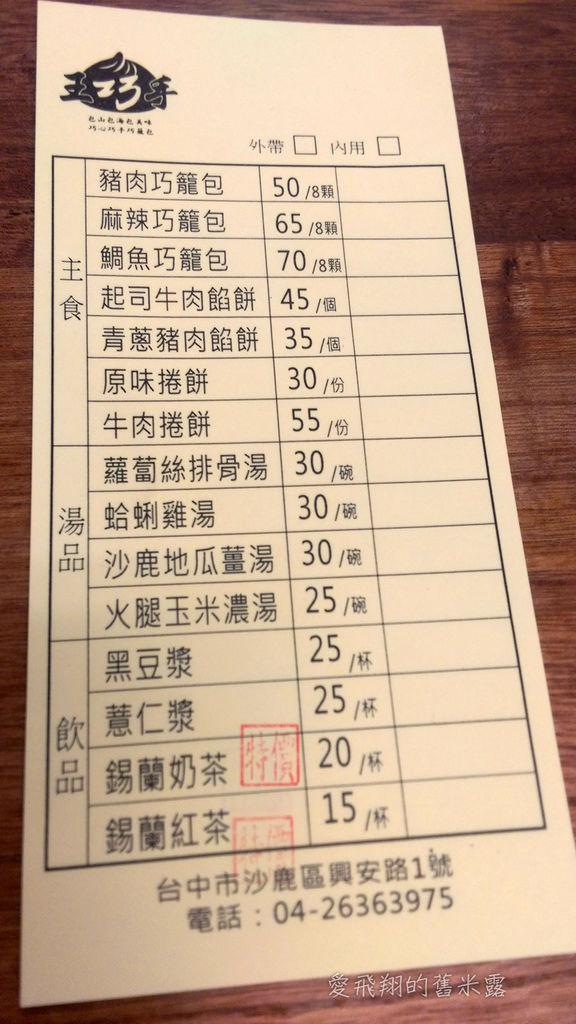 王巧手
包山包海包美味
巧心巧手巧籠包
外帶 □ 內用 □
主食
豬肉巧籠包 50/8顆
麻辣巧籠包 65/8顆
鯛魚巧籠包 70/8顆
起司牛肉餡餅 45/個
青蔥豬肉餡餅 35/個
原味捲餅 30/份
牛肉捲餅 55/份
湯品
蘿蔔絲排骨湯 30/碗
蛤蜊雞湯 30/碗
沙鹿地瓜薑湯 30/碗
火腿玉米濃湯 25/碗
飲品
黑豆漿 25/杯
薏仁漿 25/杯
錫蘭奶茶 特價 20/杯
錫蘭紅茶 特價 15/杯
台中市沙鹿區興安路1號
電話：04-26363975
愛飛翔的舊米露